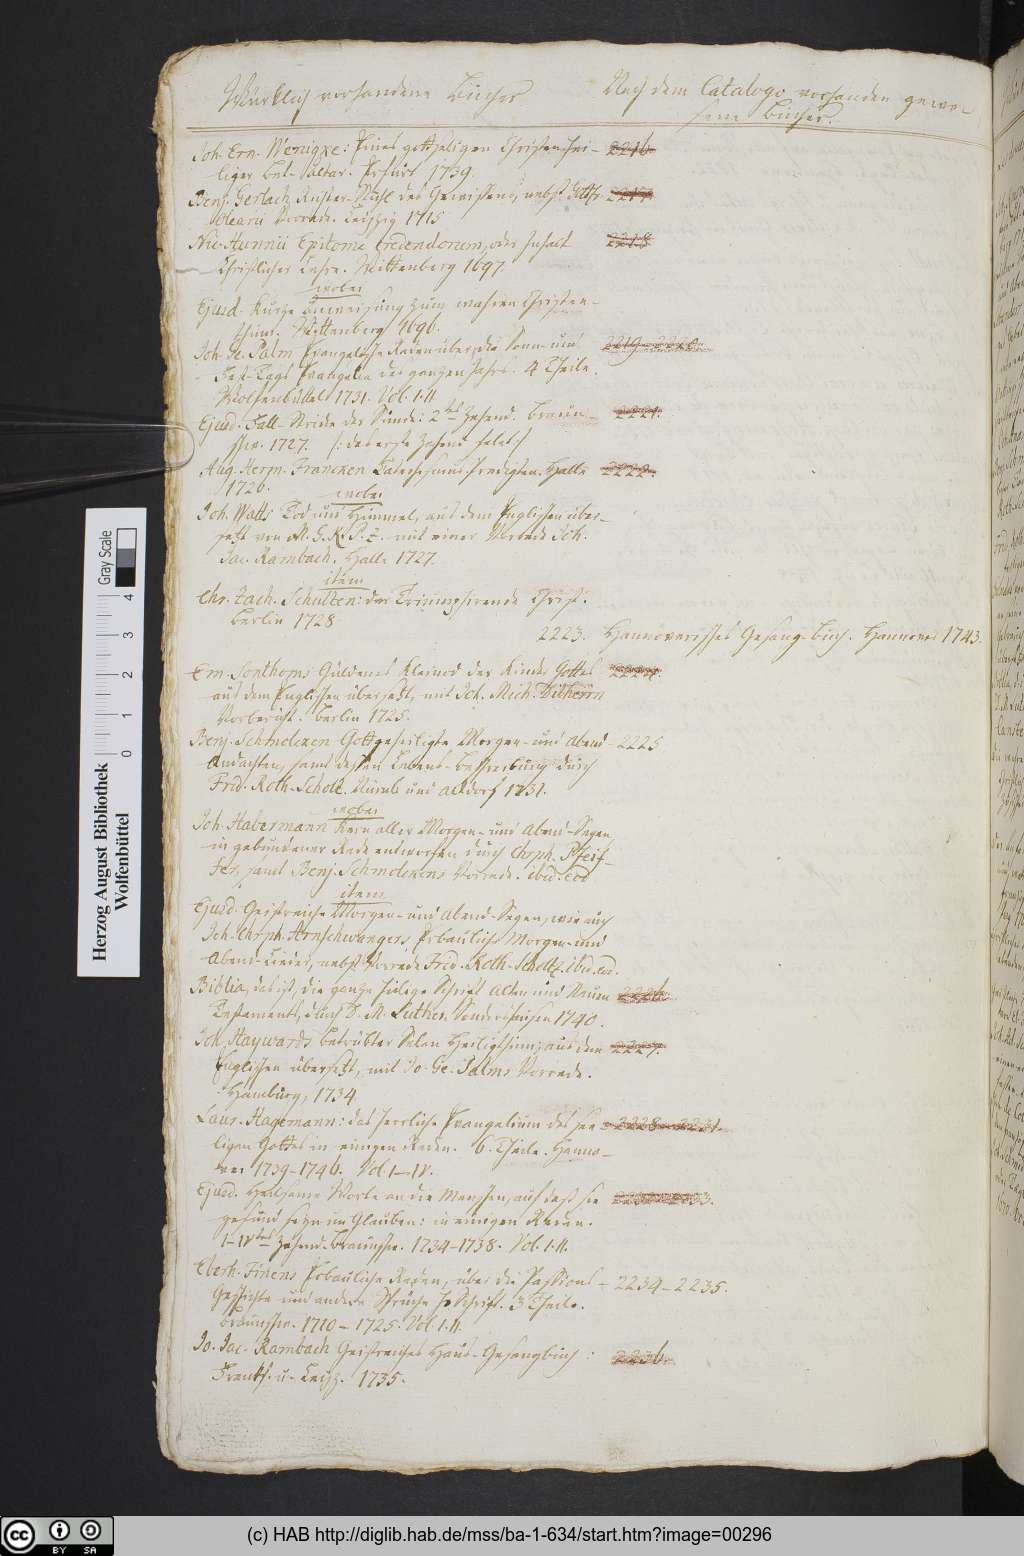 Würcklich vorhandene Bücher
Nach dem Catalogo vorhanden gewe-
sene Bücher.
Joh. Ern. Wenigke: Eines gottseligen Christen hei- 2216
liger Bet-Altar. Erfurt 1739.
Benj. Gerlach Richter-Stuhl des Gewissens, nebst Gottfr. 2217
Olearii Vorrede. Leipzig 1715
Nic. Hunnii Epitome Credendorum, oder Inhalt 2218
Christlicher Lehre. Wittenberg 1697.
wobei
Ejusd. Kurze Anweisung zum wahren Christen-
thum. Wittenberg 1696.
Joh. Ge. Palm Evangelische Reden über die Sonn- und 2219-2220.
Fest-Tags Evangelia des ganzen Jahrs. 4 Theile.
Wolfenbüttel 1731. Vol. I. II
Ejusd. Fall-Stricke der Sünde: 2tes Zehend. Braun- 2221.
schw. 1727. /: das erste Zehend fehlt :/
Aug. Herm. Francken Catechismus Predigten. Halle 2222.
1726.
wobei
Joh. Watts Tod und Himmel, aus dem Englischen über-
setzt von M. G. K. P. Z. mit einer Vorrede Joh.
Jac. Rambach. Halle 1727.
item
Chr. Zach. Schulten: der Triumphirende Christ.
Berlin 1728
2223. Hannöverisches Gesang-Buch. Hannover 1743.
Em. Sonthoms Güldenes Kleinod der Kinder Gottes 2224.
aus dem Englischen übersetzt, mit Joh. Mich. Dilherrn
Vorbericht. Berlin 1725.
Benj. Schmolcken Gottgeheiligte Morgen- und Abend- 2225
Andachten, samt dessen Lebens-Beschreibung durch
Frid. Roth-Scholz. Nürnb. und Altdorf 1731.
wobei
Joh. Habermann Kern aller Morgen- und Abend-Segen
in gebundener Rede entworfen durch Chrph. Pfeif-
fer, samt Benj. Schmolckens Vorrede. ibid. eod
item
Ejusd. Geistreiche Morgen- und Abend-Segen, wie auch
Joh. Chrph. Arnschwangers Erbauliche Morgen- und
Abend-Lieder, nebst Vorrede Frid. Roth-Scholtz. ibid. eod.
Biblia, das ist, die ganze heilige Schrift Alten und Neuen 2226.
Testaments, durch D. M. Luther. Sondershausen 1740.
Joh. Haywards Betrübter Selen Heiligthum; aus dem 2227.
Englischen übersetzt, mit Jo. Ge. Palms Vorrede.
Hamburg, 1734
Laur. Hagemann: das herrliche Evangelium des see- 2228-2231.
ligen Gottes in einigen Reden. 6. Theile. Hanno-
ver 1739-1746. Vol. I-IV.
Ejusd. Heilsame Worte an die Menschen, auf daß sie 2232-2233.
gesund seyn im Glauben: in einigen Reden.
I-IVtes Zehend. Braunschw. 1734-1738. Vol. I. II.
Eberh. Finens Erbauliche Reden, über die Passions- 2234-2235.
Geschichte und andere Sprüche H. Schrift. 3 Theile.
Braunschw. 1710-1725. Vol I. II.
Jo. Jac. Rambach Geistreiches Haus-Gesangbuch: 2236.
Franckf. u. Leipz. 1735.
Gray Scale
0 1 2 3 4
Herzog August Bibliothek
Wolfenbüttel
cc BY SA
(c) HAB http://diglib.hab.de/mss/ba-1-634/start.htm?image=00296